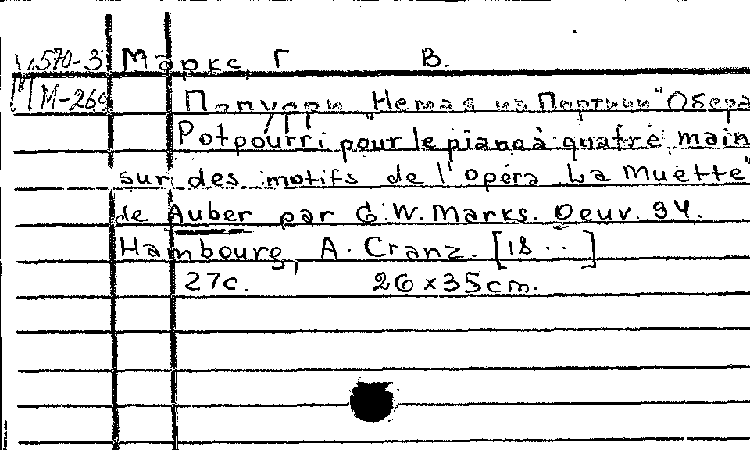 570-3 Маркс, Г В.
М-26 Попурри "Немая из Портичи" Обера
Potpourri pour le piano à quatre main
sur des motifs de l'opéra "La Muette"
de Auber par G.W. Marks. Oeuv. 94.
Hambourg, A. Cranz. [18...]
27с. 26x35cm.